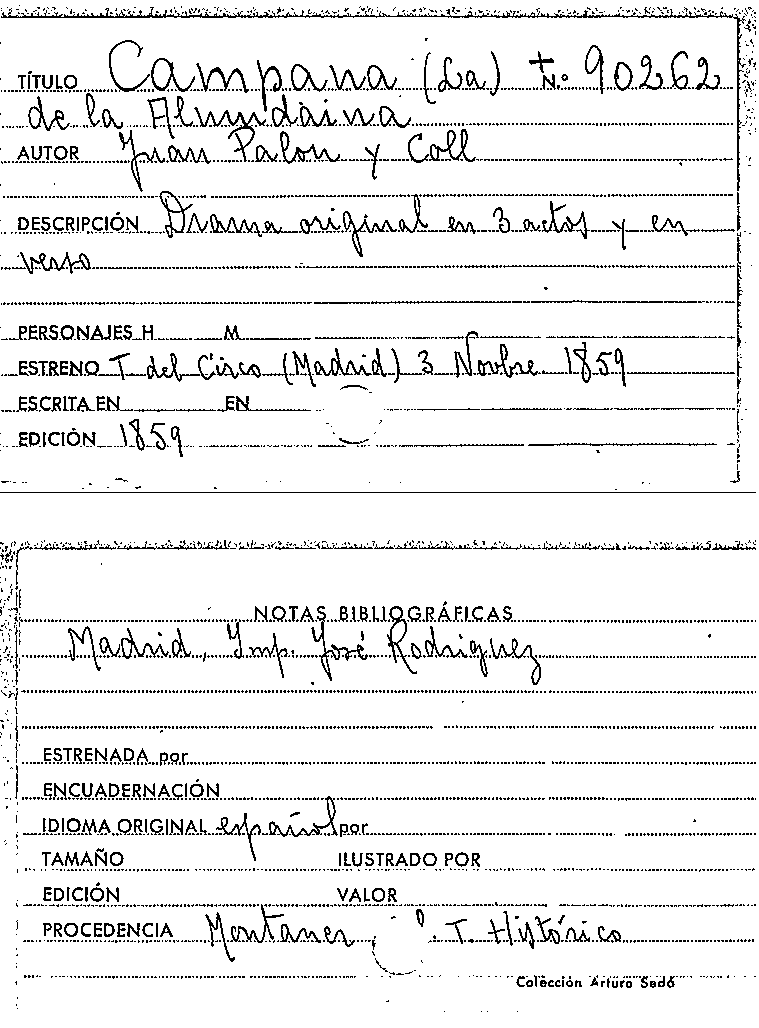 TÍTULO Campana (La) N.º 90262
de la Almudaina
AUTOR Juan Palou y Coll
DESCRIPCIÓN Drama original en 3 actos y en
verso
PERSONAJES H M
ESTRENO T. del Circo (Madrid) 3 Novbre. 1859
ESCRITA EN EN
EDICIÓN 1859
NOTAS BIBLIOGRÁFICAS
Madrid, Imp. José Rodriguez
ESTRENADA por
ENCUADERNACIÓN
IDIOMA ORIGINAL español por
TAMAÑO ILUSTRADO POR
EDICIÓN VALOR
PROCEDENCIA Montaner, T. Histórico
Colección Arturo Sedó